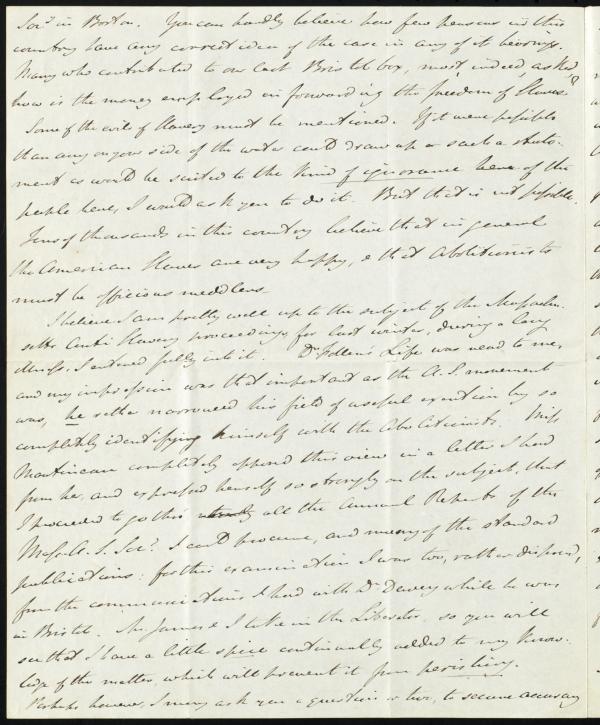 Socy in Boston. You can hardly believe how few persons in this
country have any correct idea of the case in any of it bearings.
Many who contributed to our last Bristol box, most indeed, asked,
how is the money employed in forwarding the freedom of Slaves?
Some of the evils of Slavery must be mentioned. If it were possible
than any on your side of the water could draw up a such a state-
ment as would be suited to the kind of ignorance here of the
people here, I would ask you to do it. But that is not possible.
Tens of thousands in this country believe that in general
the American Slaves are very happy, & that Abolitionists
must be officious meddlers.
I believe I am pretty well up to the subject of the Massachu-
setts Anti Slavery proceedings, for last winter, during a long
illness, I entered fully into it. Dr Follen's Life was read to me,
and my impression was that important as the A. S. movement
was, he rather narrowed his field of useful exertion by so
completely identifying himself with the Abolitionists. Miss
Martineau completely opposed this view in a letter I had
from her, and expressed herself so strongly on the subject, that
I proceeded to go thro' all the Annual Reports of the
Mass. A. S. Socy. I could procure, and many of the standard
publications: for this examination I was too, rather disposed,
from the communications I had with Dr Dewey while he was
in Bristol. Mr James & I take in the Liberator, so you will
see that I have a little spice continually added to my know-
ledge of the matter, which will prevent it from perishing.
Perhaps however, I may ask you a question or two, to secure accuracy